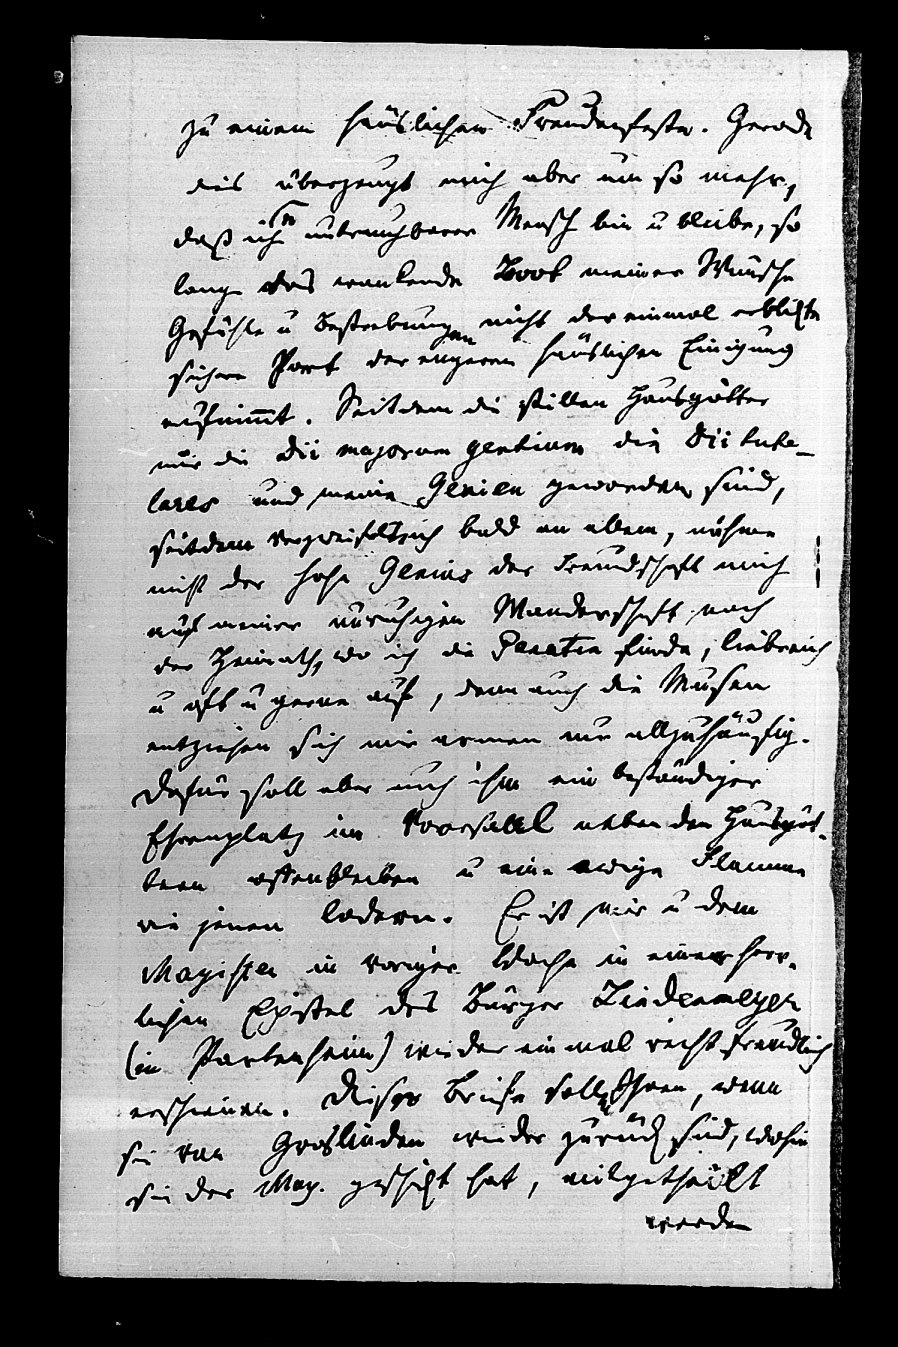 zu einem häuslichen Freudenfeste. Gerade
dies überzeugt mich aber um so mehr,
daß ich unbrauchbarer Mensch bin u bleibe, so
lang das wankende Boot meiner Wünsche
Gefühle u Bestrebungen nicht der einmal erblickte
sichere Port der engeren häuslichen Einigung
aufnimmt. Seitdem die stillen Hausgötter
mir die Dii majorum gentium die Dii tute-
lares und meine Genien geworden sind,
seitdem verzweifelt ich bald an allem, nähme
nicht der hohe Genius der Freundschaft mich
auf meiner unruhigen Wanderschaft nach
der Heimath, wo ich die Penaten finde, liebreich
u oft u gerne auf, denn auch die Musen
entziehen sich mir armen nur allzuhäufig.
Dafür soll aber auch ihm ein beständiger
Ehrenplatz im Voorsaal neben den Hausgöt-
tern offenbleiben u eine ewige Flamme
wie jenen lodern. Er ist mir u dem
Magister in voriger Woche in einer herr-
lichen Epistel des Bürger Lindenmeyer
(in Partenheim) wieder einmal recht freundlich
erschienen. Dieser Brief soll Ihnen, wenn
sie von Groslinden wieder zurück sind, wohin
sie der Mag. geschickt hat, mitgetheilt
werden